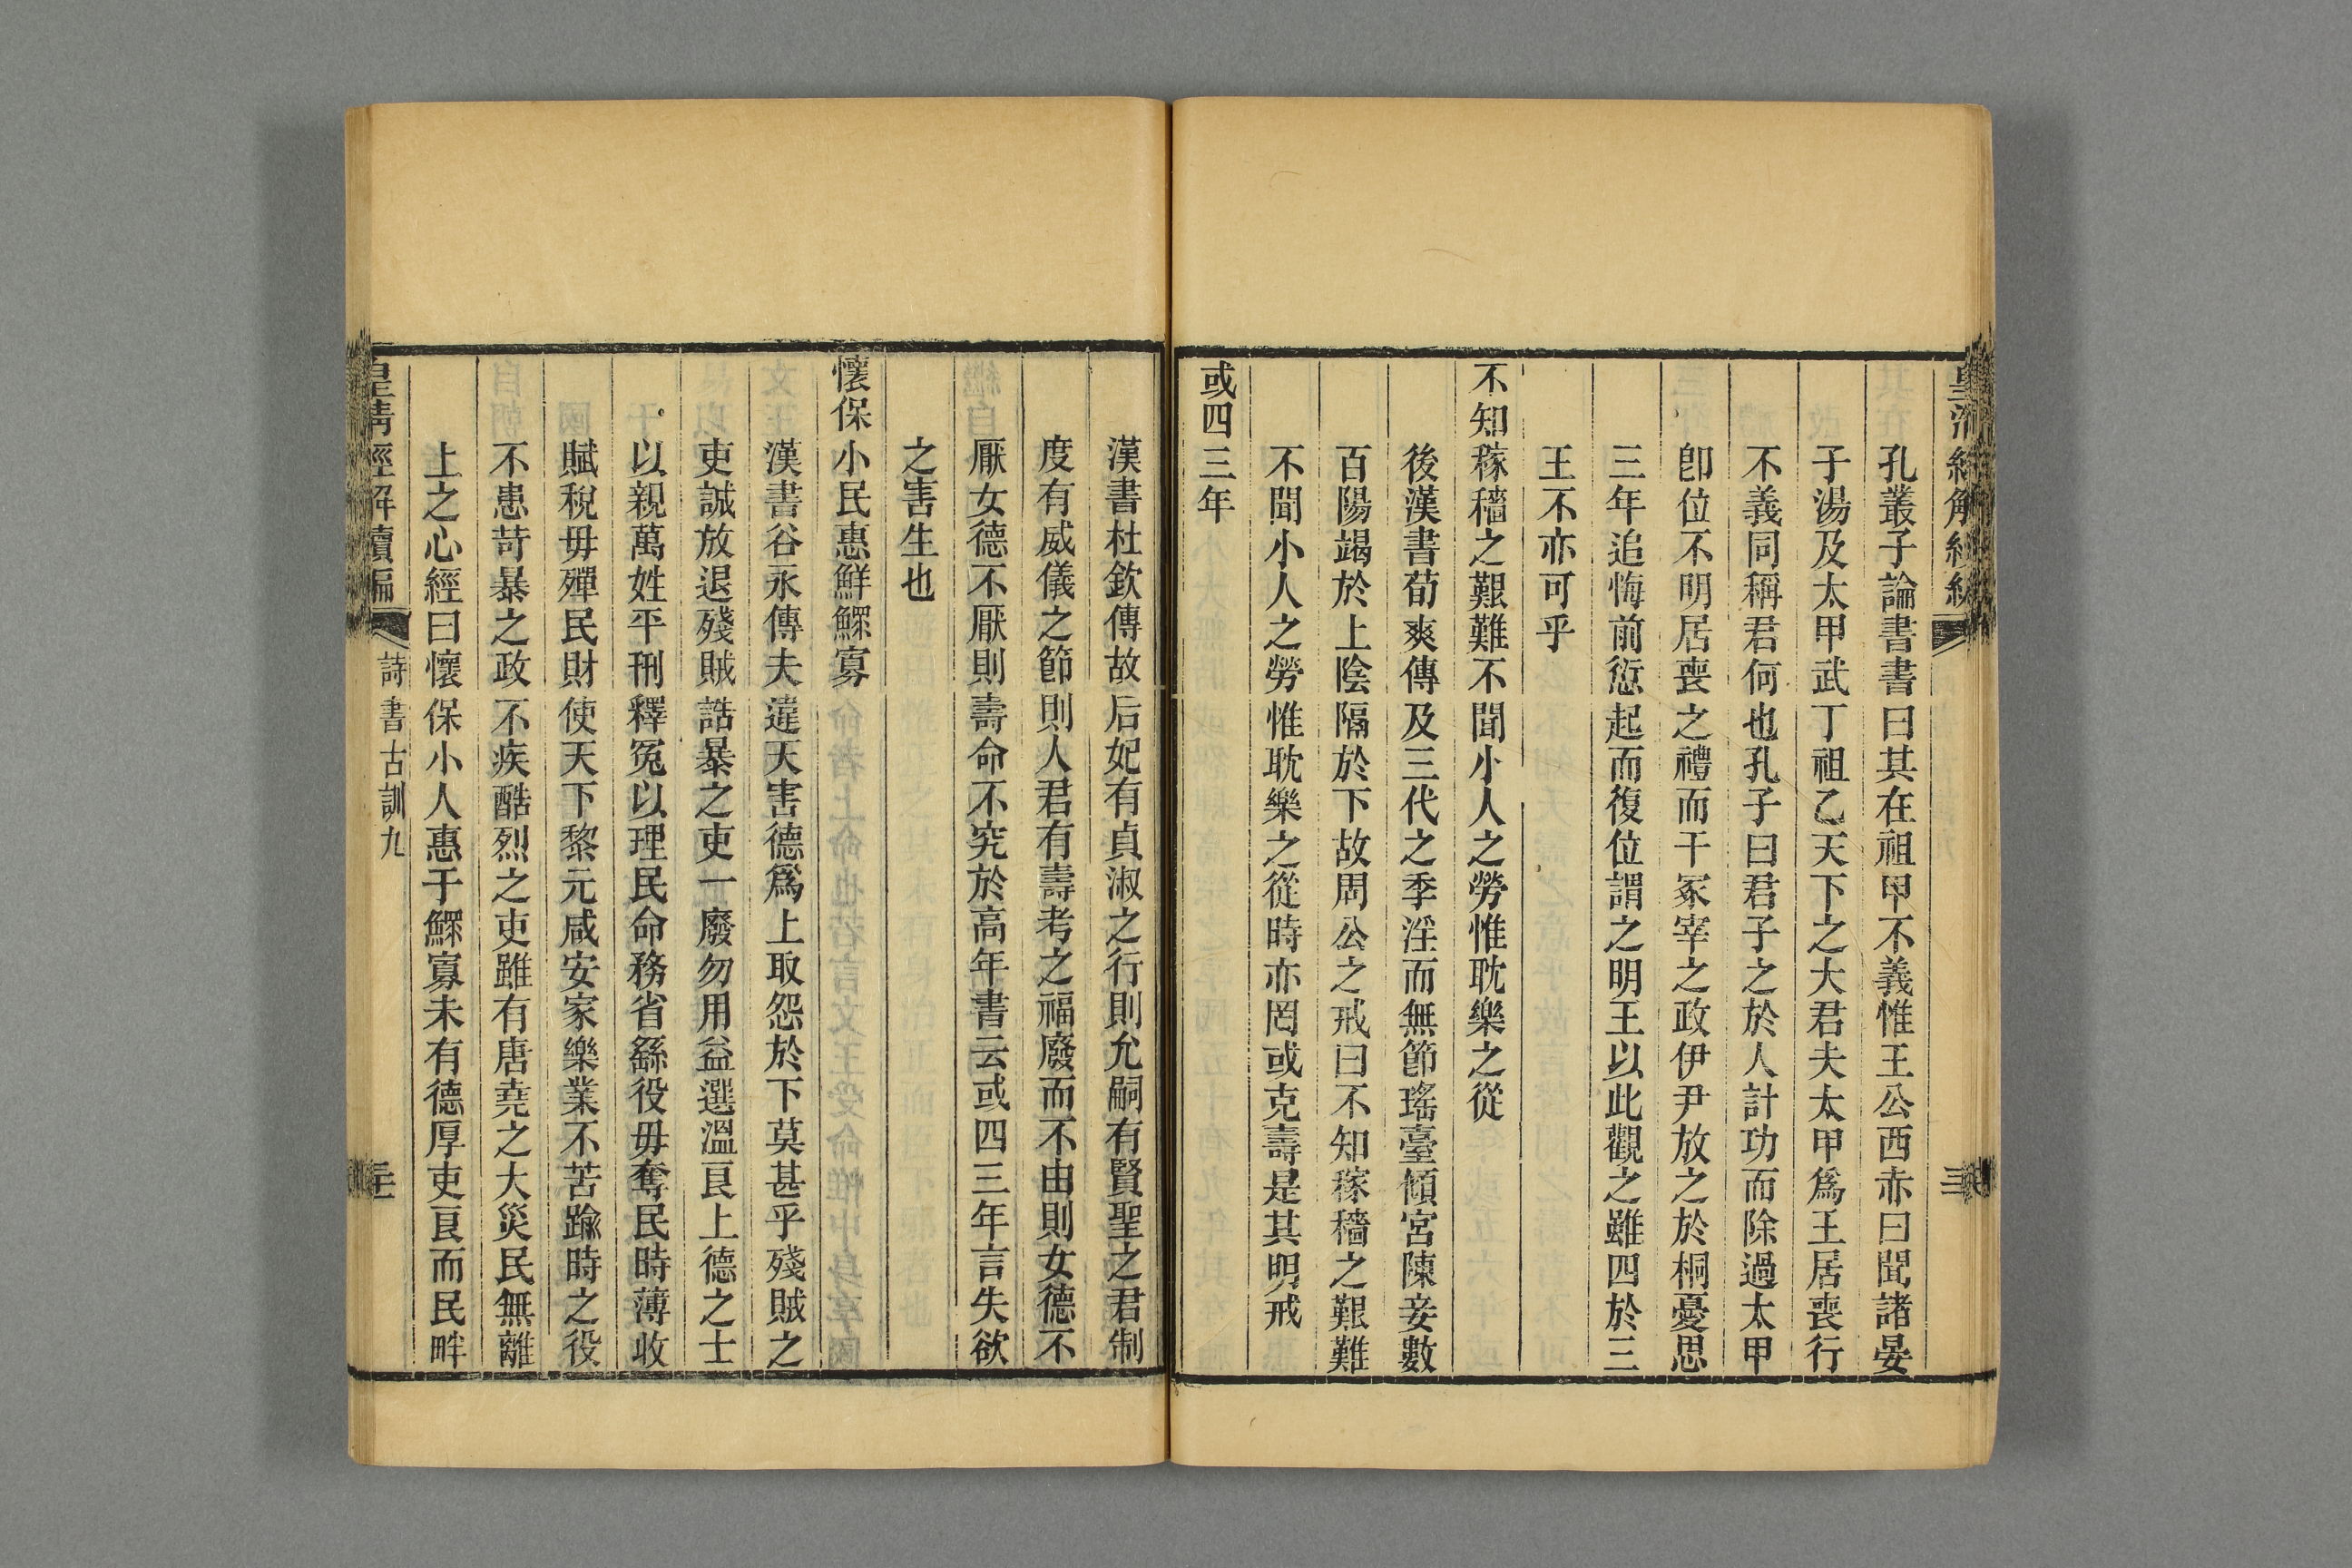 孔叢子論書書曰其在祖甲不義惟王公西赤曰聞諸晏
子湯及太甲武丁祖乙天下之大君夫太甲爲王居喪行
不義同稱君何也孔子曰君子之於人計功而除過太甲
卽位不明居喪之禮而干冢宰之政伊尹放之於桐憂思
三年追悔前愆起而復位謂之明王以此觀之雖四於三
王不亦可乎
不知稼穡之艱難不聞小人之勞惟耽樂之從
後漢書荀爽傳及三代之季淫而無節瑤臺傾宮陳妾數
百陽竭於上陰隔於下故周公之戒曰不知稼穡之艱難
不聞小人之勞惟耽樂之從時亦罔或克壽是其明戒
或四三年
漢書杜欽傳故后妃有貞淑之行則允嗣有賢聖之君制
度有威儀之節則人君有壽考之福廢而不由則女德不
厭女德不厭則壽命不究於高年書云或四三年言失欲
之害生也
懷保小民惠鮮鰥寡
漢書谷永傳夫違天害德爲上取怨於下莫甚乎殘賊之
吏誠放退殘賊誥暴之吏一廢勿用益選溫良上德之士
以親萬姓平刑釋冤以理民命務省繇役毋奪民時薄收
賦稅毋殫民財使天下黎元咸安家樂業不苦踰時之役
不患苛暴之政不疾酷烈之吏雖有唐堯之大災民無離
上之心經曰懷保小人惠于鰥寡未有德厚吏良而民畔
皇淸經解續編
詩書古訓九